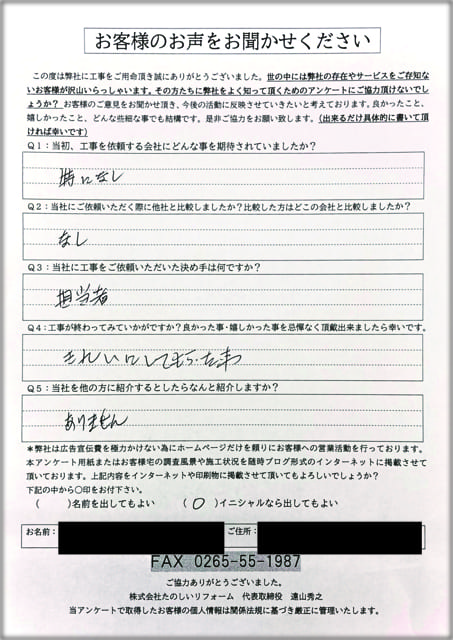 お客様のお声をお聞かせください
この度は弊社に工事をご用命頂き誠にありがとうございました。世の中には弊社の存在やサービスをご存知ないお客様が沢山いらっしゃいます。その方たちに弊社をよく知って頂くためのアンケートにご協力頂けないでしょうか？ お客様のご意見をお聞かせ頂き、今後の活動に反映させていきたいと考えております。良かったこと、嬉しかったこと、どんな些細な事でも結構です。是非ご協力をお願い致します。（出来るだけ具体的に書いて頂ければ幸いです）
Q1：当初、工事を依頼する会社にどんな事を期待されていましたか？
特になし
Q2：当社にご依頼いただく際に他社と比較しましたか？比較した方はどこの会社と比較しましたか？
なし
Q3：当社に工事をご依頼いただいた決め手は何ですか？
担当者
Q4：工事が終わってみていかがですか？良かった事・嬉しかった事を忌憚なく頂戴出来ましたら幸いです。
きれいにしてもらった事
Q5：当社を他の方に紹介するとしたらなんと紹介しますか？
ありません
＊弊社は広告宣伝費を極力かけない為にホームページだけを頼りにお客様への営業活動を行っております。
本アンケート用紙またはお客様宅の調査風景や施工状況を随時ブログ形式のインターネットに掲載させて
頂いております。上記内容をインターネットや印刷物に掲載させて頂いてもよろしいでしょうか？
下記の中から〇印をお付下さい。
（　　）名前を出してもよい　　（ 〇 ）イニシャルなら出してもよい
お名前：　　ご住所：
FAX 0265-55-1987
ご協力ありがとうございました。
株式会社たのしいリフォーム　代表取締役　遠山秀之
当アンケートで取得したお客様の個人情報は関係法規に基づき厳正に管理いたします。